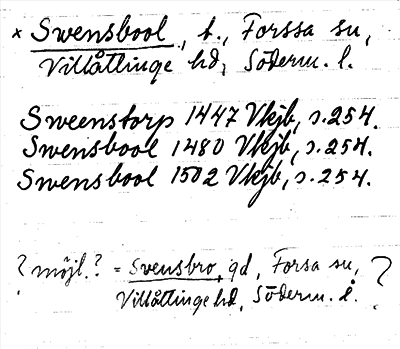 × Swensbool, b., Forssa sn,
Villåttinge hd, Söderm. l.
Sweenstorp 1447 Vkjb, s.254.
Swensbool 1480 Vkjb, s.254.
Swensbool 1502 Vkjb, s.254.
? möjl.? = Svensbro, gd, Forsa sn, ?
Villåttinge hd, Söderm. l.